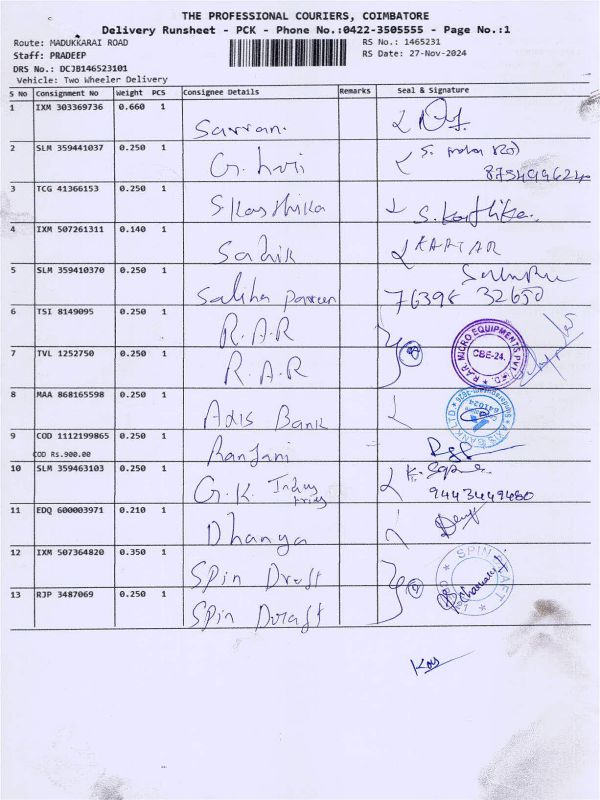 THE PROFESSIONAL COURIERS, COIMBATORE
Delivery Runsheet - PCK - Phone No.:0422-3505555 - Page No.:1
Route: MADUKKARAI ROAD
RS No.: 1465231
Staff: PRADEEP
RS Date: 27-Nov-2024
DRS No.: DCJB146523101
Vehicle: Two Wheeler Delivery
S No Consignment No Weight PCS Consignee Details Remarks Seal & Signature
1 IXM 303369736 0.660 1
Sarran.
2 SLM 359441037 0.250 1
G. hari
3 TCG 41366153 0.250 1
S. Karthika S. Karthika.
4 IXM 507261311 0.140 1
Sadik
5 SLM 359410370 0.250 1
Saliha Parveen 76398 32650
6 TSI 8149095 0.250 1
R.A.R
R.A.R. MICRO EQUIPMENTS PVT. LTD.
CBE-24.
7 TVL 1252750 0.250 1
R.A.R
8 MAA 868165598 0.250 1
Axis Bank
AXIS BANK LTD
9 COD 1112199865 0.250 1
COD Rs.900.00
Ranjani
10 SLM 359463103 0.250 1
G.K. Industries
9443449480
11 EDQ 600003971 0.210 1
Dhanya
12 IXM 507364820 0.350 1
Spin Draft
SPIN DRAFT
13 RJP 3487069 0.250 1
Spin Draft